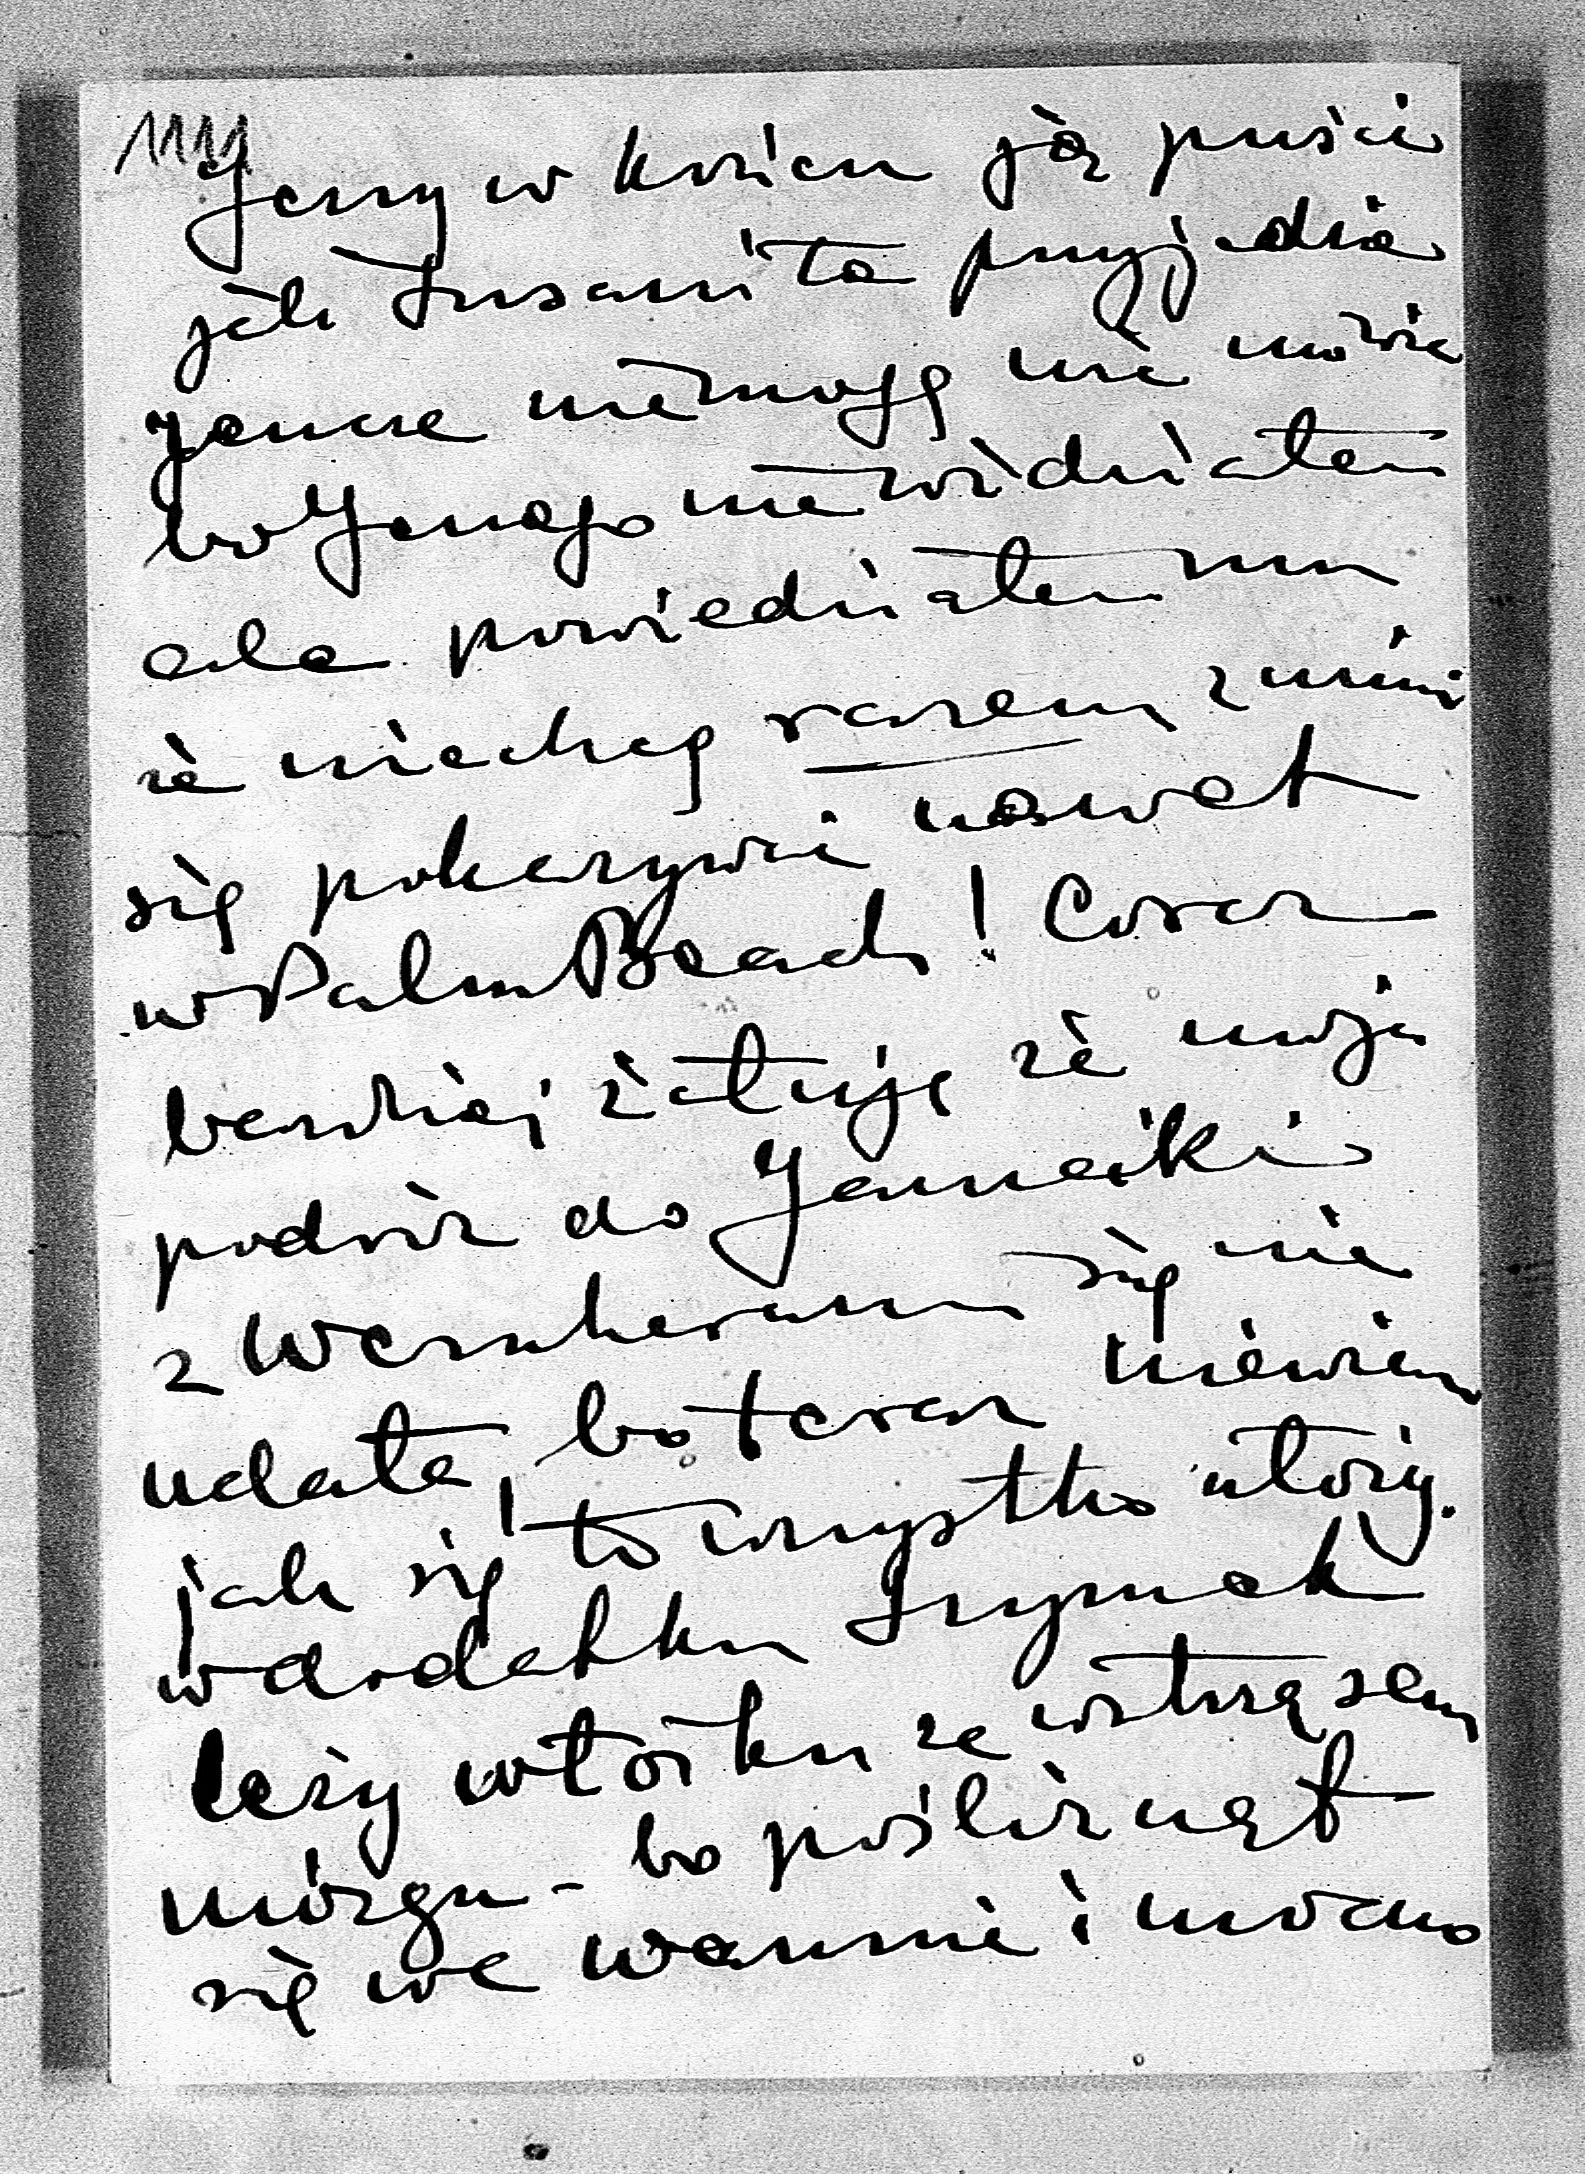 1111
Jerzy w końcu ją puści
jak Zusanita przyjedzie
jeszcze nie mogę nic
bo Jerzego nie widziałem
ale powiedziałem mu
że nie chcę razem z nimi
się pokazywać nawet
w Palm Beach! Coraz
bardziej żałuję że moja
podróż do Jamaiki
z Wernherami się nie
udała, bo teraz nie wiem
jak się to wszystko ułoży.
w dodatku Szymek
leży w łóżku ze wstrząsem
mózgu - bo pośliznął
się we wannie i mocno